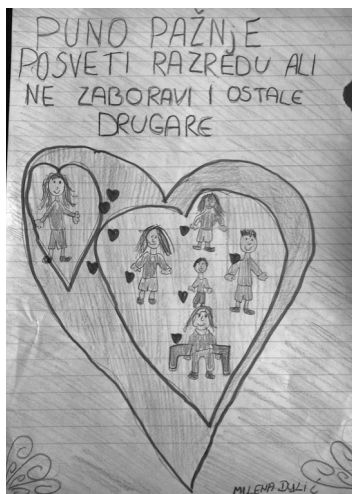 PUNO PAŽNjE
POSVETI RAZREDU ALI
NE ZABORAVI I OSTALE
DRUGARE
MILENA DULIĆ